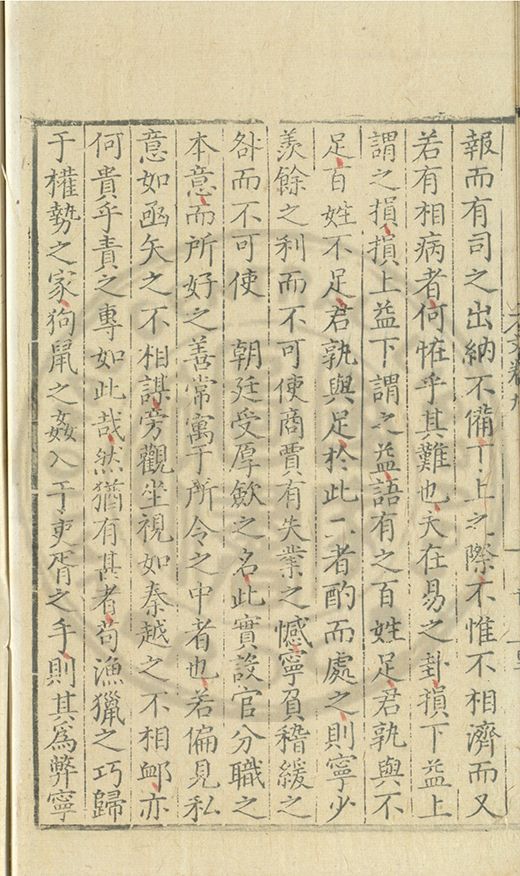 報而有司之出納不備丁上之際不惟不相濟而又
若有相病者何怪乎其難也夫在易之卦損下益上
謂之損損上益下謂之益語有之百姓足君孰與不
足百姓不足君孰與足於此二者酌而處之則寧少
羨餘之利而不可使商賈有失業之憾寧負稽緩之
咎而不可使　朝廷受厚歛之名此實設官分職之
本意而所好之善常寓于所令之中者也若偏見私
意如函矢之不相謀旁觀坐視如秦越之不相卹亦
何貴乎責之專如此哉然猶有甚者苟漁獵之巧歸
于權勢之家狗鼠之姦入于吏胥之手則其為弊寧